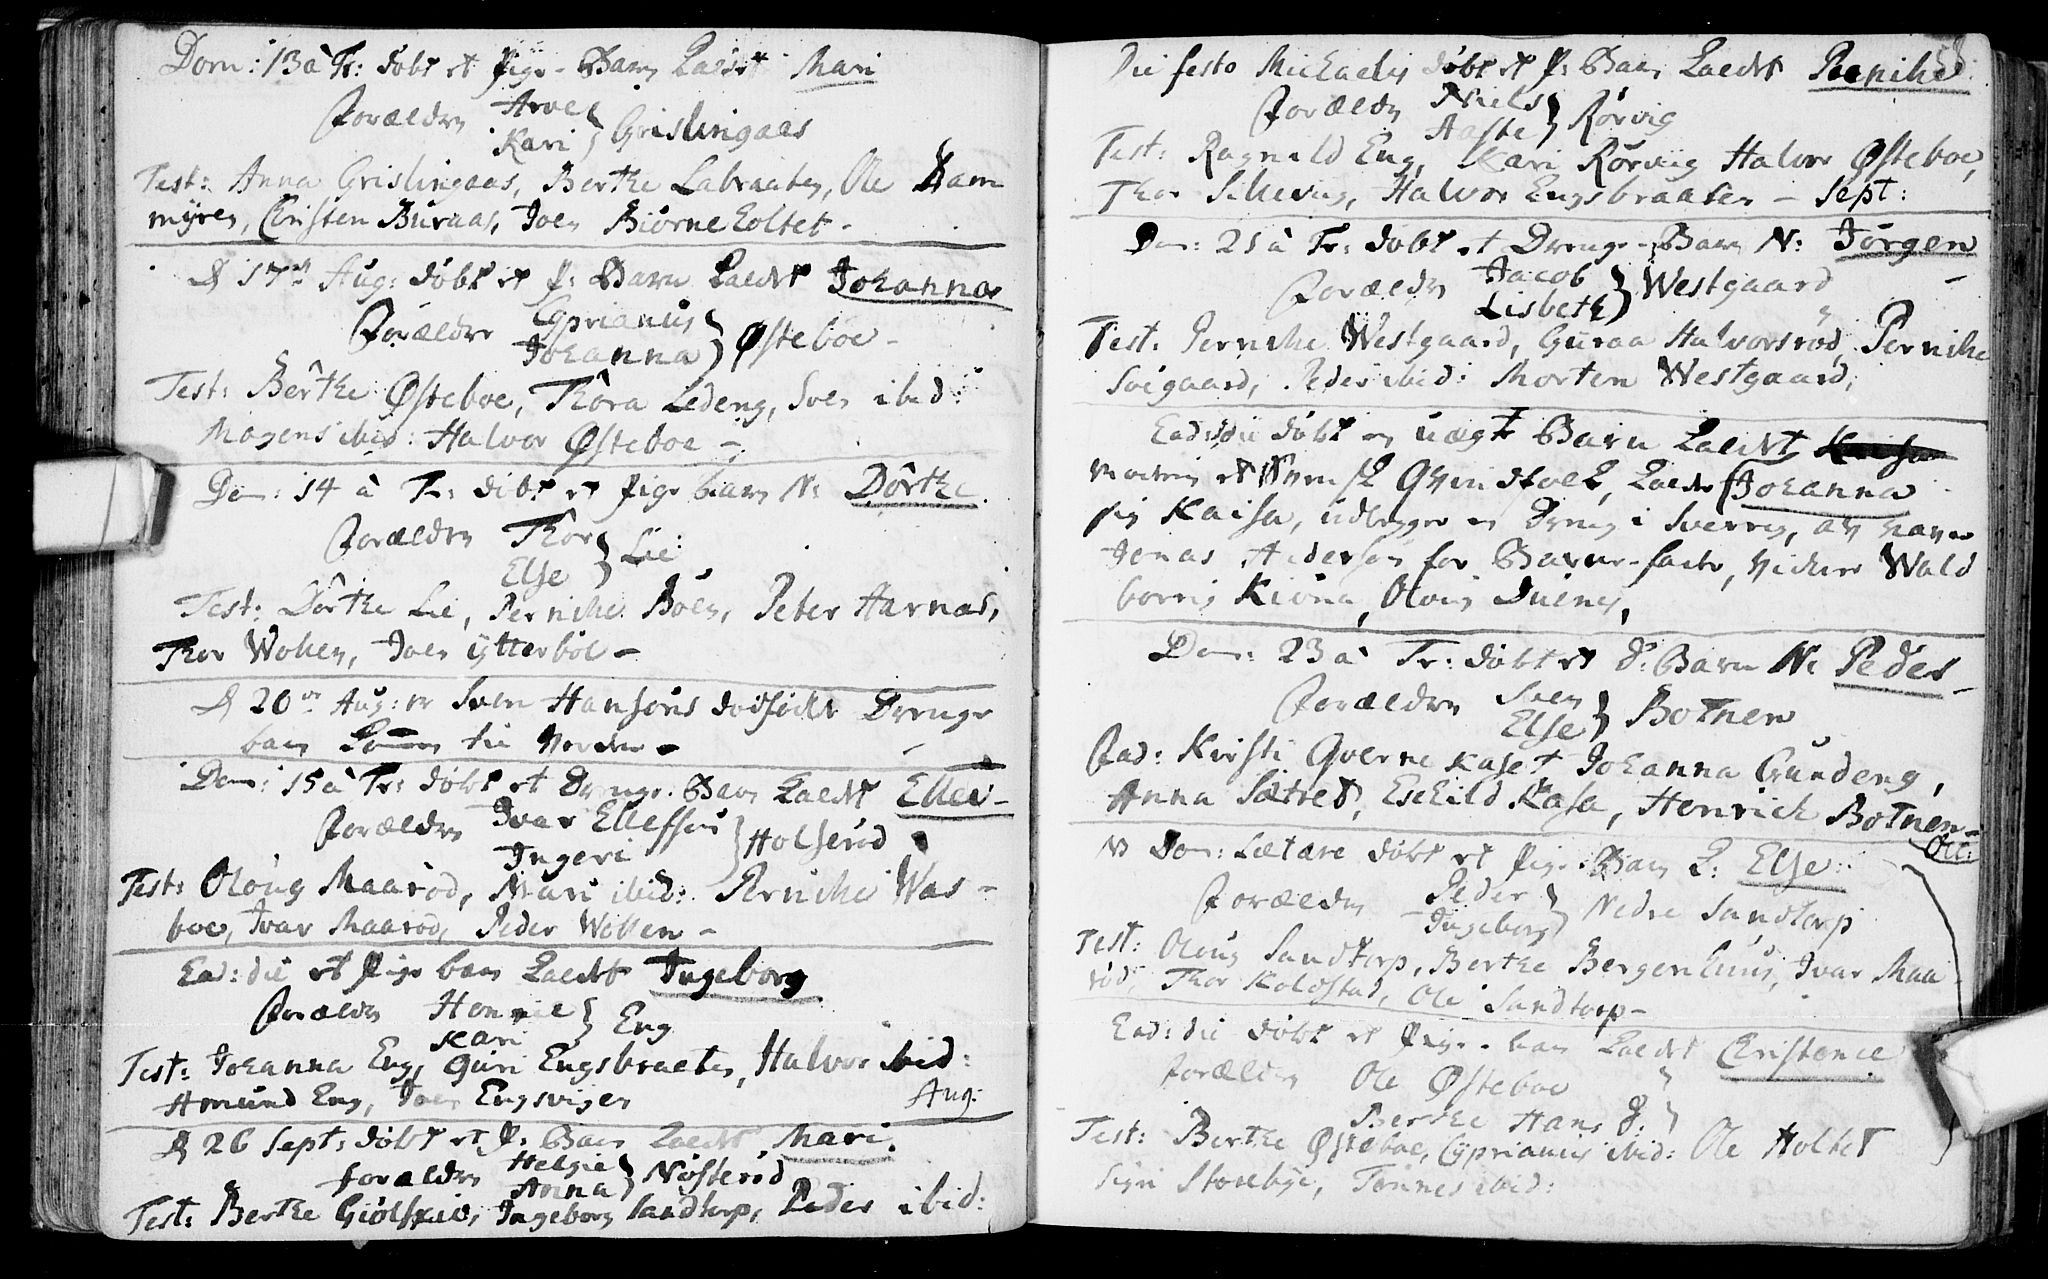 Dom: 13 à Tr: døbt et Pige-Barn kaldt Mari
Forældre Arve
Kari } Grislingaas
Test: Anna Grislingaas, Berthe Labraaten, Ole Dam
myren, Christen Buraas, Joen Biørneholtet.
D 17de Aug: døbt et P: Barn kaldt Johanna
Forældre Cyprianus
Johanna } Østeboe
Test: Berthe Østeboe, Thora Ledeng, Sven ibid:
Mogens ibid: Halvor Østeboe
Dom: 14 à Tr: døbt et Pige barn N: Dørthe
Forældre Thor
Else } Lie:
Test: Dørthe Lie, Pernihe Boen, Peter Harnas,
Thor Wollen, Joen ytterbøe
D 20de Aug: er Sven Hansøns dødfødte Drenge
barn kommen til Verden
Dom: 15 à Tr: døbt et Drenge-Barn kaldt Ellev
Forældre Ivar Ellefsøn
Ingeri } Holserød
Test: Oloug Maarød, Mari ibid: Pernihe Was-
boe, Ivar Maarød, Peder Wollen
Ead: die et Pige barn kaldt Ingeborg
Forældre Hennie
Kari } Eng
Test: Johanna Eng, Guri Engsbraaten, Halvor ibid:
Amund Eng, Joen Engsvigen Aug:
D 26 Sept: døbt et P: Barn kaldt Mari
Forældre Helgie
Anna } Nøsterød
Test: Berthe Giølstad, Ingeborg Sandtorp, Peder ibid:
58.
Die festo Michaelis døbt et P: Barn kaldt Pernihe
Forældre Niels
Aaste } Rørvig
Test: Ragnild Eng, Kari Rørviig Halvor Østeboe,
Thor Halvor Engsbraaten - Sept:
Dom: 21 à Tr: døbt et Drenge-Barn N: Jørgen
Forældre Jacob
Lisbeth } Westgaard
Test: Pernihe Westgaard, Guraa Halvorsrød, Pernihe
Solgaard, Peder ibid: Morten Westgaard,
Ead: die døbt et uægte Barn kaldt
Moderen et Svensk Qvindfolk, kalder Johanna
sig Kaisa, udlegger en Dreng i Sverrig, af navn
Jonas Anderson for Barne-fader, Vidner Wald
borrig Kiøna, Olvis Duenes,
Dom: 23 à Tr: døbt et D: Barn N: Peder
Forældre Sven
Else } Botnen
Fad: Kirsti Qvernekaset Johanna Gundeng,
Anna Sætret, Eschild Kasa, Henrich Botnen
Oct:
N Dom: Lætare døbt et Pige-Barn k: Else
Forældre Peder
Ingeborg } Nedre Sandtorp
Test: Oloug Sandtorp, Berthe Bergerhuus, Ivar Maa
rød, Thor Kolostad, Ole Sandtorp
Ead: die døbt et Pige-barn kaldt Christence
Forældre Ole Østeboe
Berthe Hans D: }
Test: Berthe Østeboe, Cyprianus ibid: Ole Holtet
Sigri Storebye, Tønnes ibid: